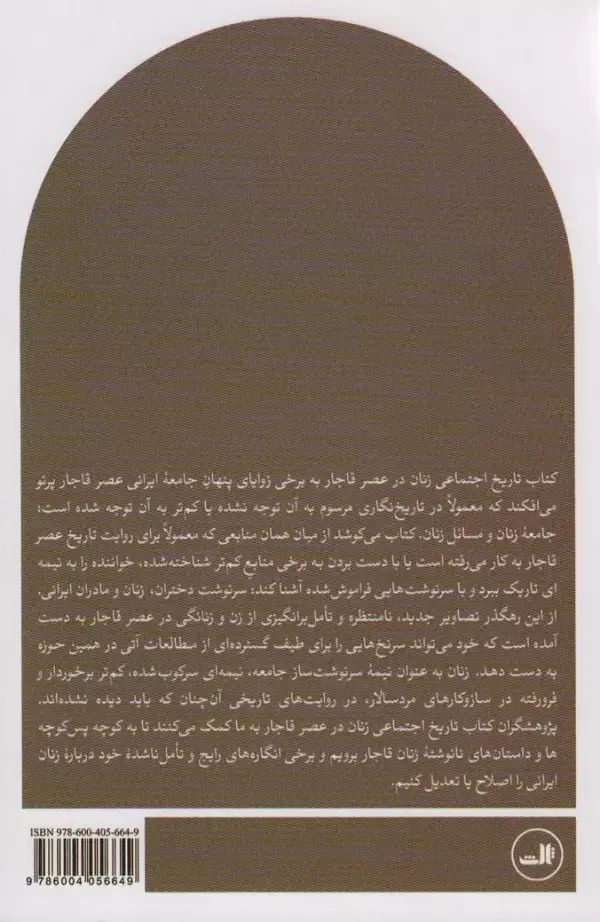 کتاب تاریخ اجتماعی زنان در عصر قاجار به برخی زوایای پنهانِ جامعهٔ ایرانی عصر قاجار پرتو
می‌افکند که معمولاً در تاریخ‌نگاری مرسوم به آن توجه نشده یا کم‌تر به آن توجه شده است:
جامعهٔ زنان و مسائل زنان. کتاب می‌کوشد از میان همان منابعی که معمولاً برای روایت تاریخ عصر
قاجار به کار می‌رفته است یا با دست بردن به برخی منابع کم‌تر شناخته‌شده، خواننده را به نیمه
ای تاریک ببرد و با سرنوشت‌هایی فراموش‌شده آشنا کند: سرنوشت دختران، زنان و مادران ایرانی.
از این رهگذر تصاویر جدید، نامنتظره و تأمل‌برانگیزی از زن و زنانگی در عصر قاجار به دست
آمده است که خود می‌تواند سرنخ‌هایی را برای طیف گسترده‌ای از مطالعات آتی در همین حوزه
به دست دهد. زنان به عنوان نیمهٔ سرنوشت‌ساز جامعه، نیمه‌ای سرکوب‌شده، کم‌تر برخوردار و
فرورفته در سازوکارهای مردسالار، در روایت‌های تاریخی آن‌چنان که باید دیده نشده‌اند.
پژوهشگران کتاب تاریخ اجتماعی زنان در عصر قاجار به ما کمک می‌کنند تا به کوچه پس‌کوچه
ها و داستان‌های نانوشتهٔ زنان قاجار برویم و برخی انگاره‌های رایج و تأمل‌ناشدهٔ خود دربارهٔ زنان
ایرانی را اصلاح یا تعدیل کنیم.
ISBN 978-600-405-664-9
9 786004 056649
ثالث